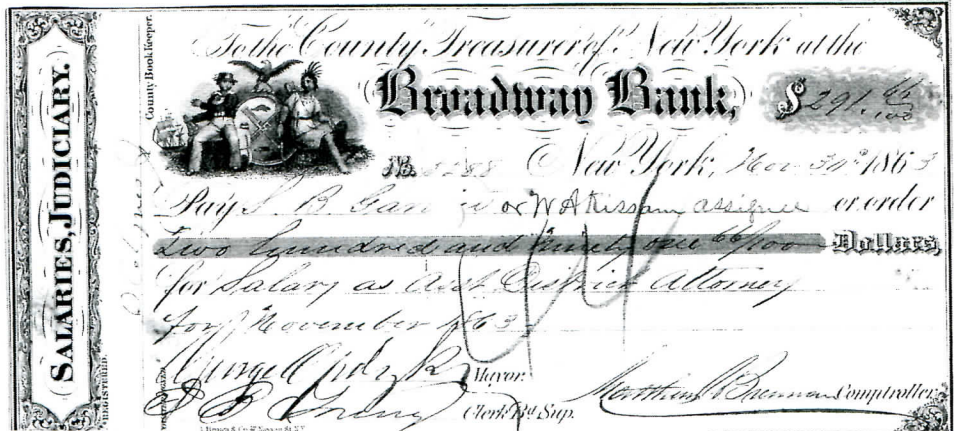 SALARIES, JUDICIARY.
REGISTERED.
County Bookkeeper.
To the County Treasurer of New York at the
Broadway Bank,
$291.66/100
No. New York, Nov 30th 1863
Pay S. B. Garvin or W A Kissam assignee or order
Two hundred and ninety one 66/100 Dollars,
for Salary as Asst District Attorney
for November 1863
George Opdyke Mayor.
Matthew T Brennan Comptroller.
Clerk Bd Sup.